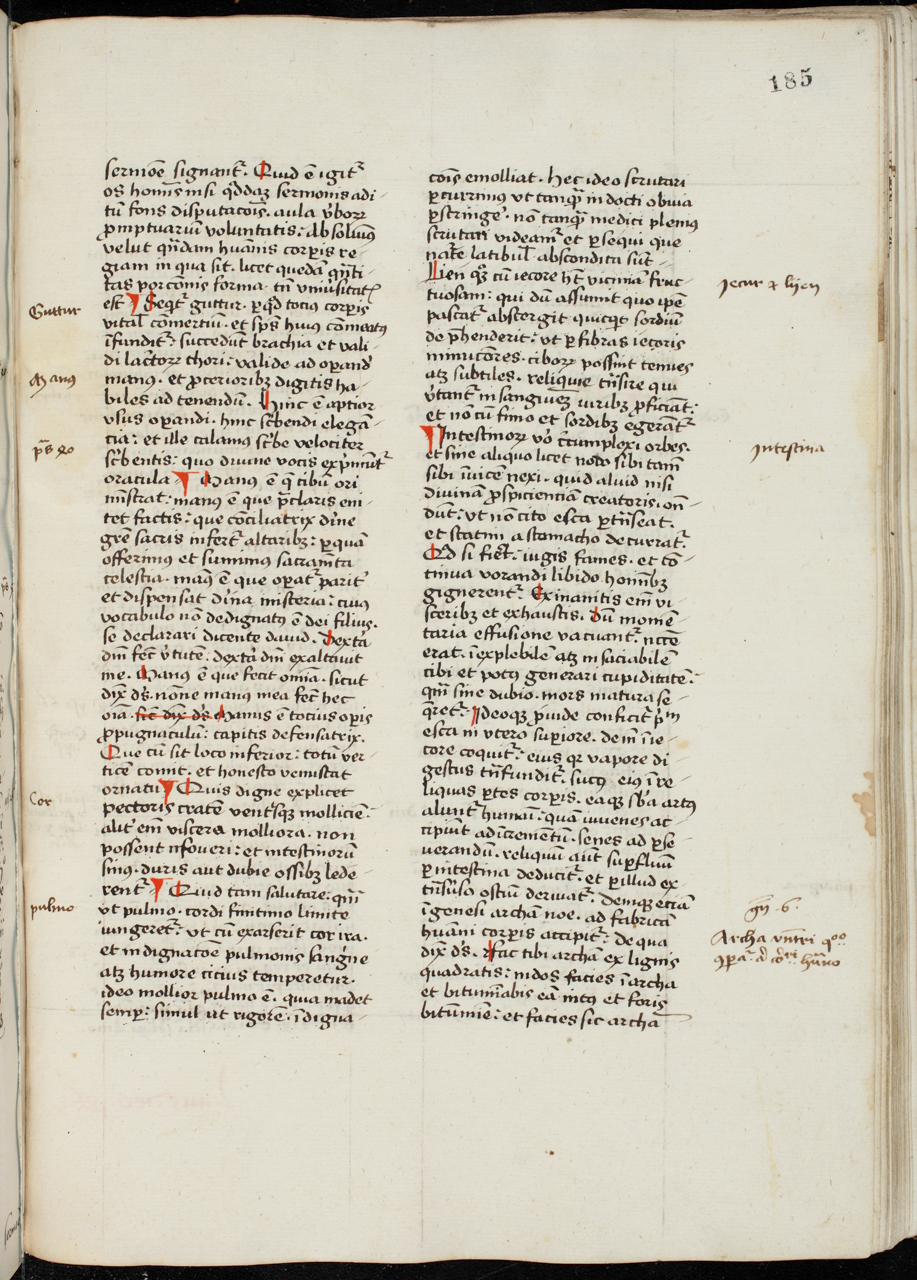 185
sermoē signant᷑. Quid ē igit᷑
os homīs nisi q̄ddaʒ sermonis adi-
tū fons disputacōis. aula v̓boꝝ
ꝓmptuariū voluntatis: Absoluimꝰ
velut qn̄dam hūanis corꝑis re-
giam in qua sit. licet quedā qn̄ti-
tas porcōnis forma. tn̄ vniu̓sitatꝭ
est ¶ Seqt᷑ guttur. ꝑ qd̓ tociꝰ corꝑis
vital̓ cōmertiū. et sp̄s huiꝰ cōmeatꝰ
īfundit᷑: succedūt brachia et vali-
di lac̓toꝝ thori: valide ad oꝑand̓
manꝰ. et ꝓcerioribʒ digitis ha-
biles ad tenendū. Hinc ē aptior
vsus oꝑandi. hinc sc̓bendi elegā-
cia: et ille calamus sc̓be velociter
sc̓bentis: quo diuine vocis exp̓mūt᷑
oracula ¶ Manꝰ ē q̄ cibū ori
mīstrat: manꝰ ē que p̄claris eni-
tet factis: que cōciliatrix dīne
grē sacris infert᷑ altaribʒ: ꝑ quā
offerimꝰ et sumimꝰ sacramēta
celestia. manꝰ ē que oꝑat᷑ parit̓
et dispensat dīna misteria: cuiꝰ
vocabulo nō dedignatꝰ ē dei filiꝰ.
se declarari dicente dauid. Dextā
dn̄i fec̄ v̓tutē. dext̓a dn̄i exaltauit
me. Manꝰ ē que fecit om̄ia. sicut
dix̄ dꝰs. nōne manus mea fec̄ hec
oīa. fec̄ dix̄ dꝰs Manus ē tocius oꝑis
ꝓpugnaculū: capitis defensatrix.
Que cū sit loco inferior: totū ver-
ticē comit. et honesto venustat
ornatu ¶ Quis digne explicet
pectoris cratē vent᷑sqʒ molliciē:
alit̓ em̄ viscera molliora. non
possent ꝯfoueri: et intestinorū
sinꝰ. duris aut dubie ossibʒ lede-
rent᷑ ¶ Quid tam salutare: qm̄
vt pulmo. cordi finitimo limite
iungeret᷑: vt cū exarserit cor ira.
et indignatōe pulmonis sang̓ne
atʒ humore cicius temperetur.
ideo mollior pulmo ē. quia madet
semꝑ: simul vt rigorē. īdigna-
cōis emolliat. Hec ideo scrutari
ꝑcurrimꝰ vt tanqͣ indocti obuia
ꝑstringe᷑. nō tanqͣ medici pleniꝰ
scrutari videam᷑ et ꝑsequi que
nat᷑e latibul̓ abscondita sūt-
Lien qʒ cū iecore hʒ viciniā fruc-
tuosam: qui dū assumit quo ip̄e
pascat᷑ abstergit quicqͥt sordiū
dep̓henderit: vt ꝑ fibras iecoris
minucōres. ciboꝝ possint tenues
atʒ subtiles. reliquie tn̄sire qui
v̓tant᷑ in sanguineʒ viribʒ ꝓficiant:
et nō cū fimo et sordibʒ egerant᷑
¶ Intestinoꝝ vo̓ c̓cumplexi orbes.
et sine aliquo licet nodo sibi tam̄
sibi īuicē nexi. quid aliud nisi
diuinā ꝓspicienciā creatoris on̄-
dūt: vt nō cito esca ꝑtn̄seat.
et statim a stomacho decurrat᷑.
Qd̓ si fiet̓: iugis fames. et cō-
tinua vorandi libido. hominibʒ
gignerent᷑. Exinanitis em̄ vi-
sceribʒ et exhaustis. dū momē-
taria effusione vacuant᷑. necē
erat. īexplebilē atʒ insaciabilē
cibi et potꝰ generari cupiditatē:
qm̄ sine dubio. mors matura se-
q̄ret᷑. Ideoqʒ ꝓuide conficit᷑ p̓m
esca in vtero suꝑiore. dein ī ie-
core coquit᷑: eiꝰ qʒ vapore di-
gestus tn̄sfundit᷑. sucꝰ eiꝰ ī re-
liquas ꝑtes corꝑis. eaqʒ sb̓a artꝰ
alunt᷑ humāi: quā iuuenes ac-
cipiūt ad incremētū. senes ad ꝑse-
uerandū. reliquū aūt suꝑfluū
ꝑ intestina deducit᷑. et ꝑ illud ex
tn̄suso ostiū deriuat᷑. Deniqʒ eciā
ī genesi archā noe. ad fabricā
hūani corꝑis accipit᷑: de qua
dix̄ dꝰs. Fac tibi archā ex lignis
quadratis: nidos facies ī archa
et bitumīabis eā intꝰ et foris
bitumīe: et facies sic archā
Guttur
Manus
Cor
pulmo
Jecur ⁊ lyen
Intestina
gn̄. 6.
Archa